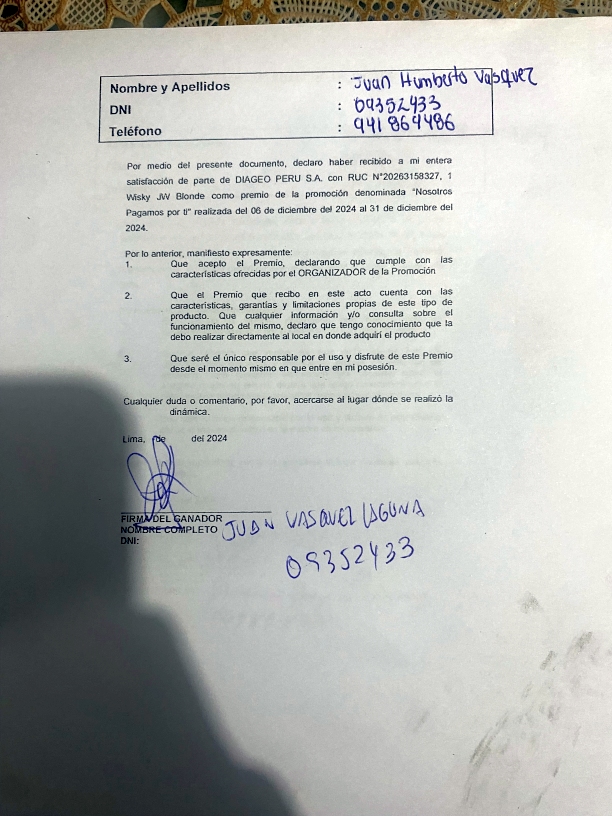 Nombre y Apellidos : Juan Humberto Vasquez
DNI : 09352433
Teléfono : 941864486
Por medio del presente documento, declaro haber recibido a mi entera
satisfacción de parte de DIAGEO PERU S.A. con RUC N°20263158327, 1
Wisky JW Blonde como premio de la promoción denominada "Nosotros
Pagamos por ti" realizada del 06 de diciembre del 2024 al 31 de diciembre del
2024.
Por lo anterior, manifiesto expresamente:
1. Que acepto el Premio, declarando que cumple con las
características ofrecidas por el ORGANIZADOR de la Promoción
2. Que el Premio que recibo en este acto cuenta con las
características, garantías y limitaciones propias de este tipo de
producto. Que cualquier información y/o consulta sobre el
funcionamiento del mismo, declaro que tengo conocimiento que la
debo realizar directamente al local en donde adquirí el producto
3. Que seré el único responsable por el uso y disfrute de este Premio
desde el momento mismo en que entre en mi posesión.
Cualquier duda o comentario, por favor, acercarse al lugar dónde se realizó la
dinámica.
Lima, de del 2024
FIRMA DEL GANADOR
NOMBRE COMPLETO JUAN VASQUEZ LAGUNA
DNI: 09352433